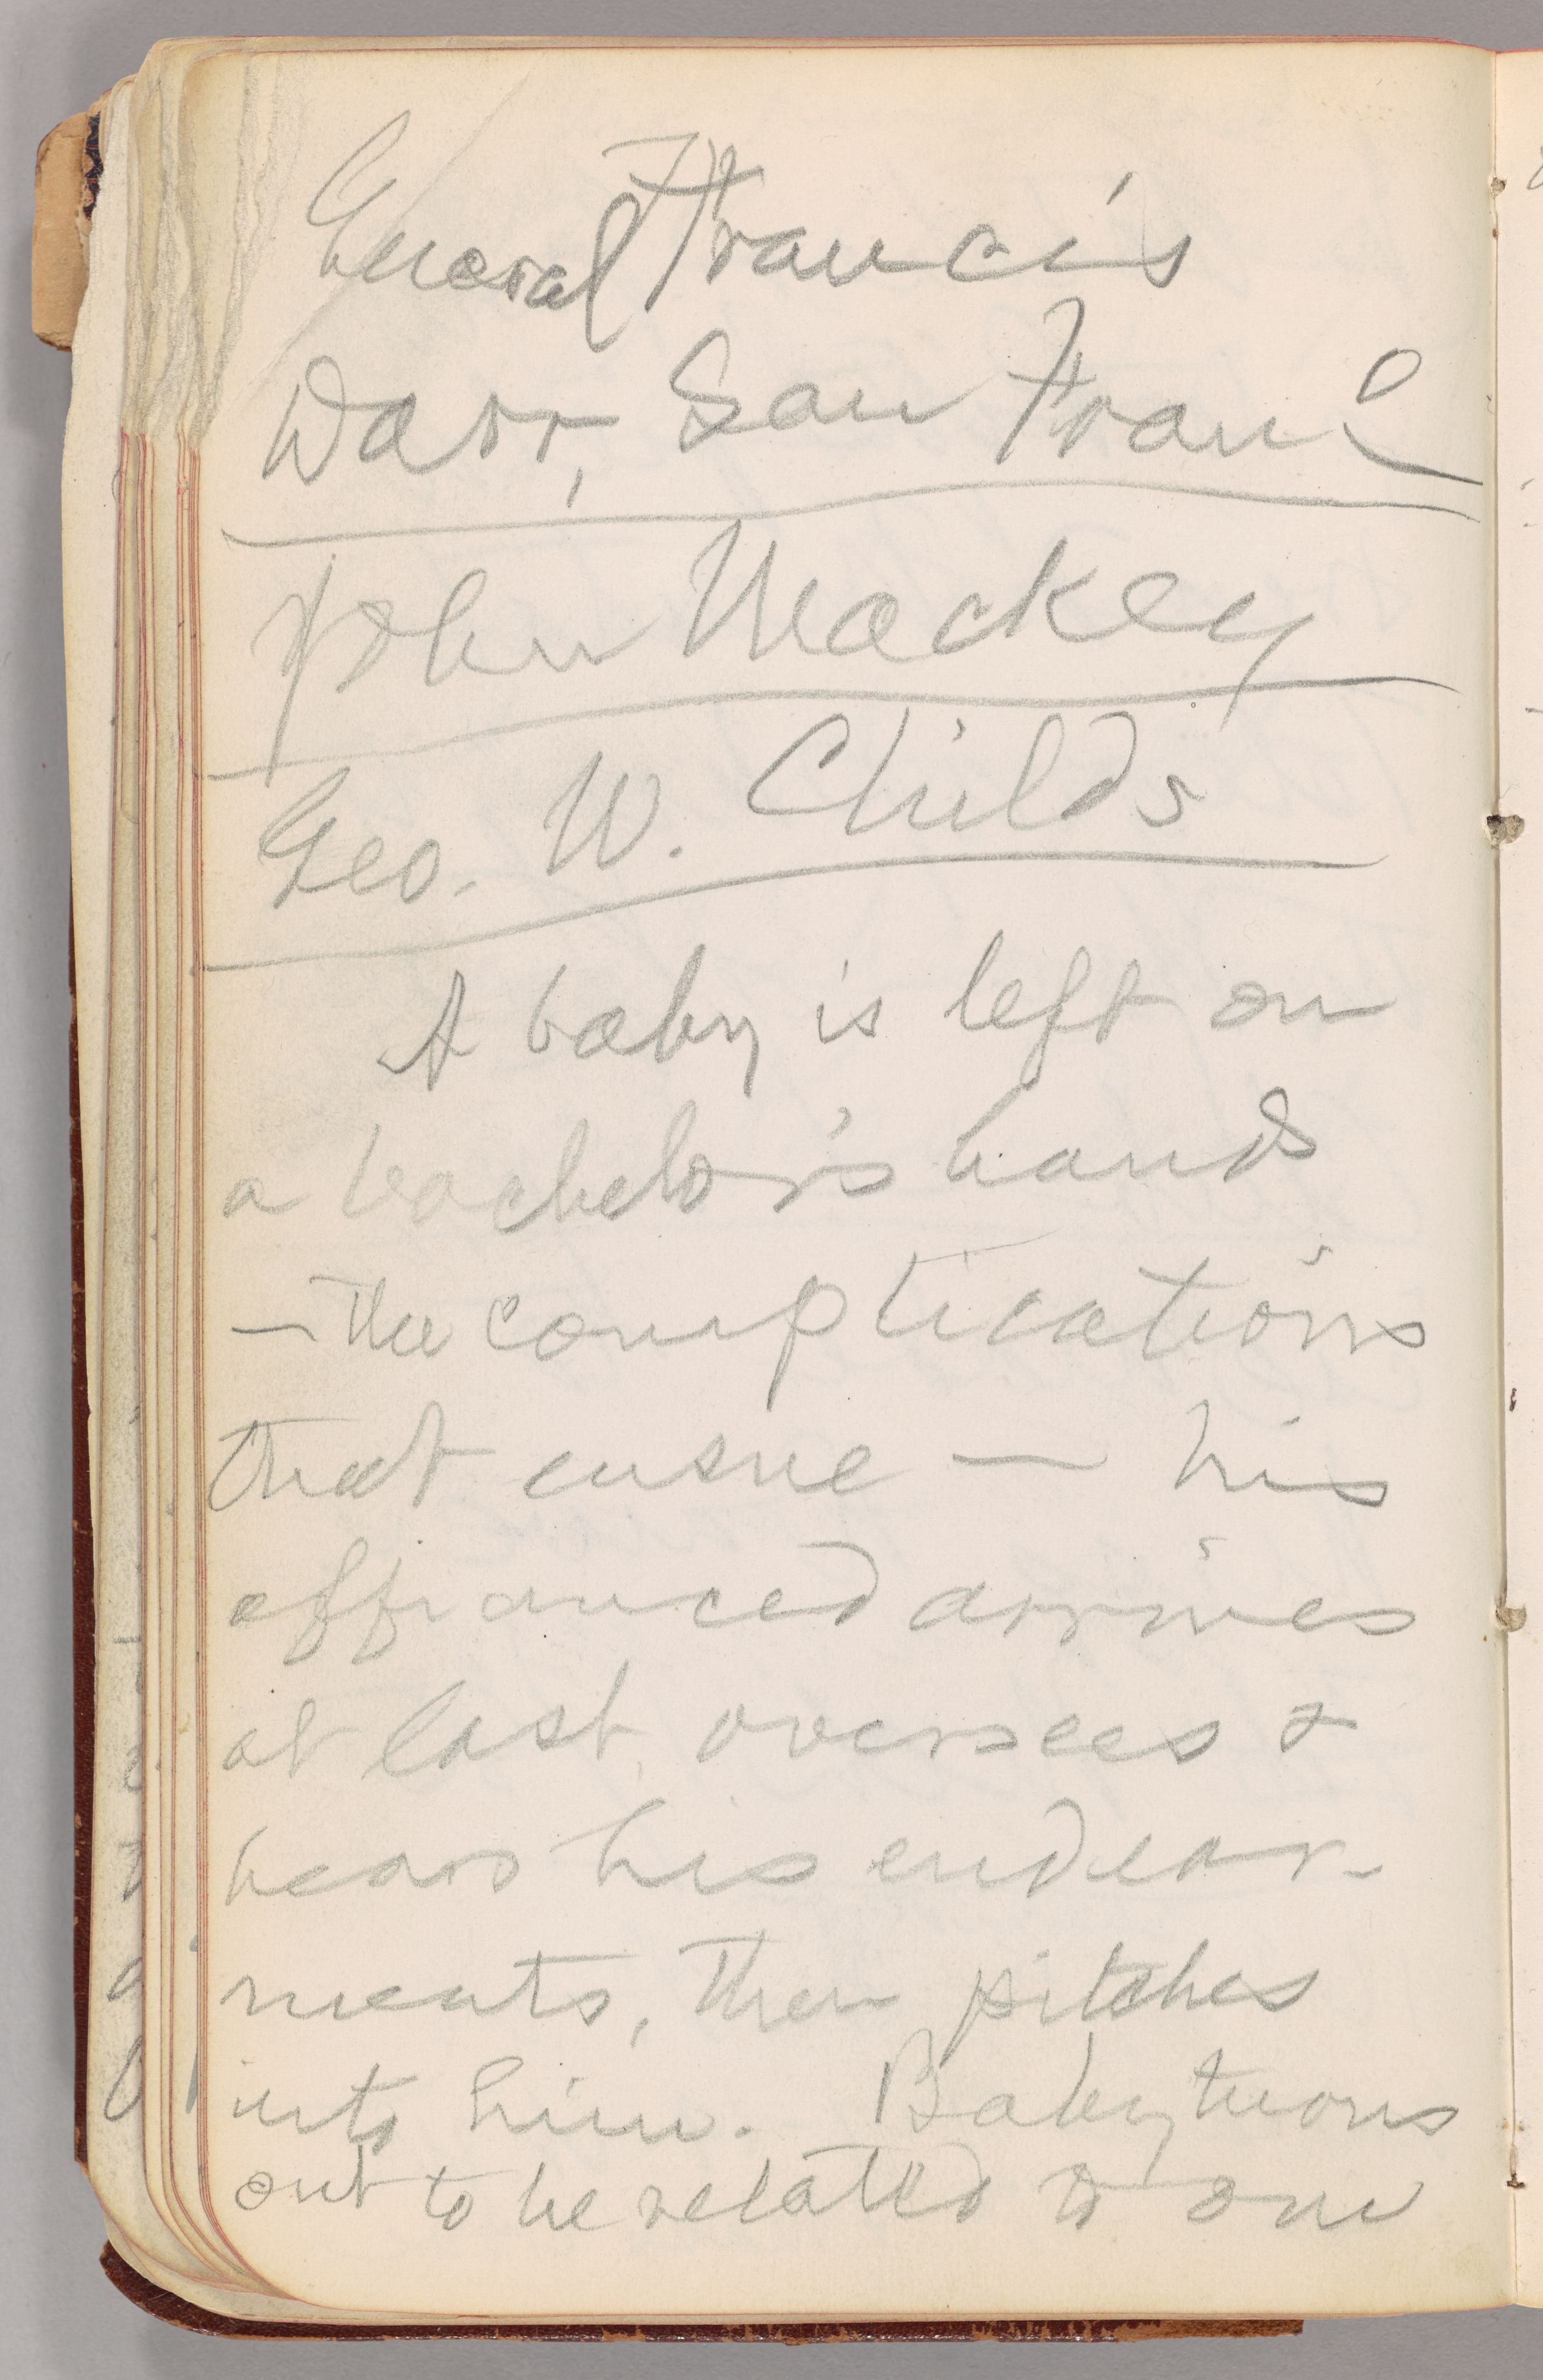 General Francis
Darr, San Franco
John Mackey
Geo. W. Childs
A baby is left on
a bachelor's hands
— the complications
that ensue — his
affianced arrives
at last, oversees &
hears his endear-
ments, then pitches
into him. Baby turns
out to be related to one